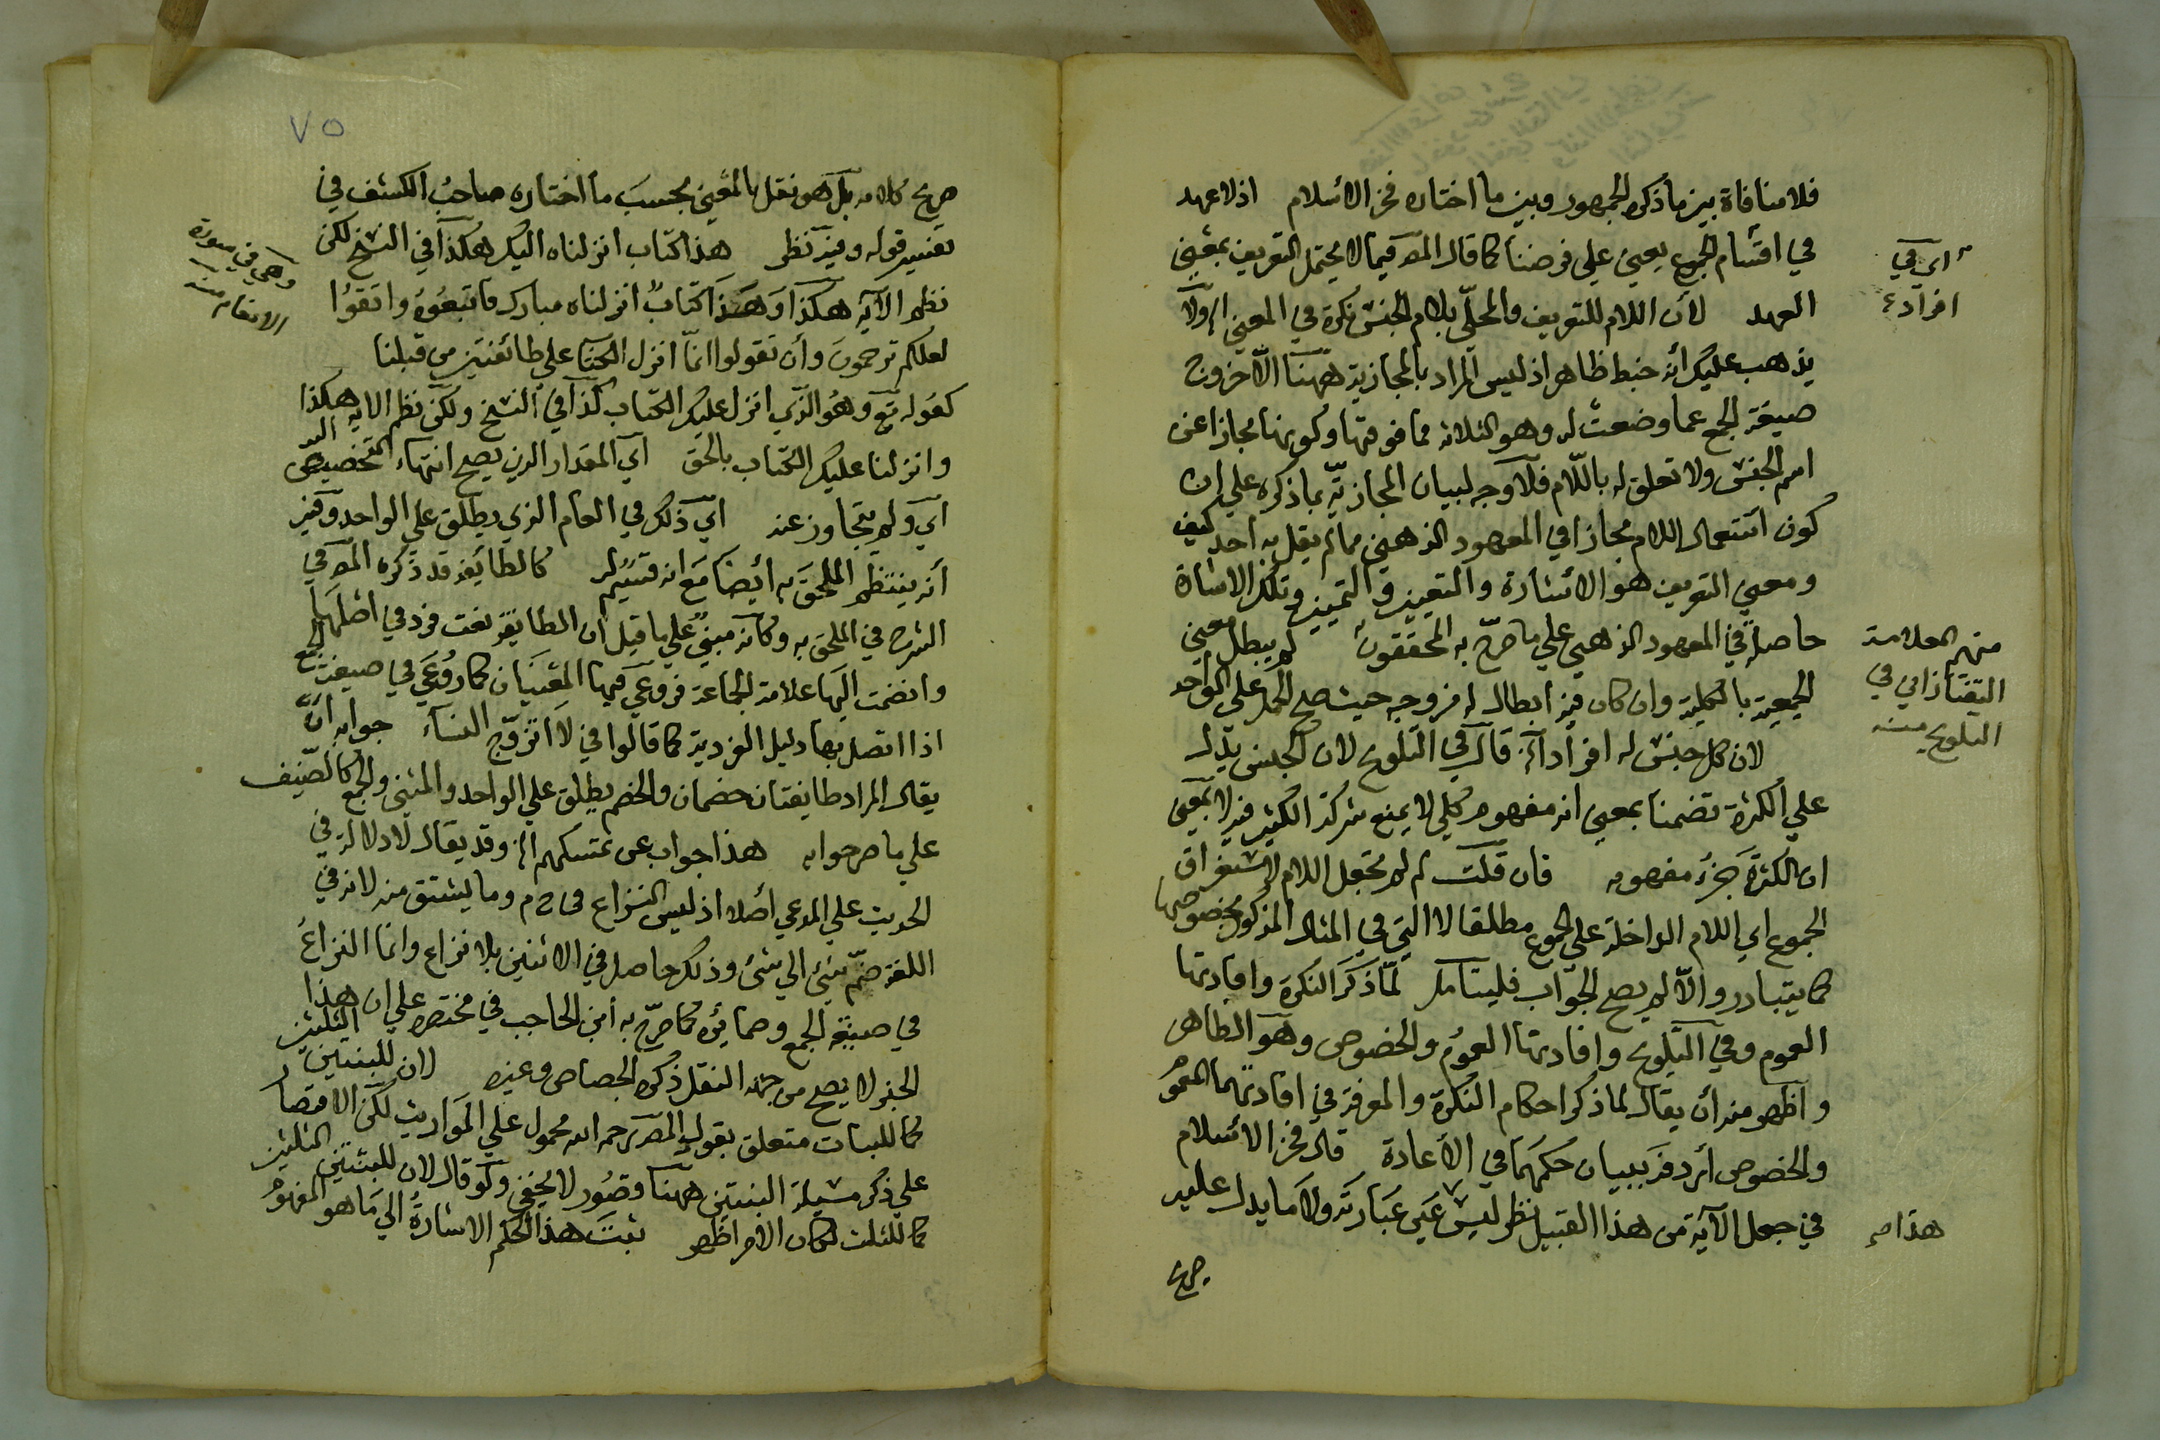 فلا منافاة بين ما ذكره الجمهور وبين ما اختاره فخر الاسلام اذ لا عهد
في اقسام الجمع يعني علي فرضنا كما قال المص فيما لا يحتمل التعريف بمعني
العهد لان اللام للتعريف والمحلّي بلام الجنس نكرة في المعني الخ ولا
يذهب عليك أنه خبط ظاهر اذ ليس المراد بالمجازية ههنا الا خروج
صيغة الجمع عما وضعت له وهو الثلاثه فما فوقها وكونها مجازا عن
اسم الجنس ولا تعلق له باللام فلا وجه لبيان المجازيّة بما ذكره علي ان
كون استعمال اللام مجازا في المعهود الذهني مما لم يقل به احد كيف
ومعني التعريف هو الاشارة والتعيين والتمييز وتلك الاشارة
حاصلة في المعهود الذهني علي ما صرّح به المحققون لم يبطل معني
الجمعية بالكلية وان كان فيه ابطال له من وجه حيث صح الحمل علي الواحد
لان كل جنس له افراد الخ قال في التلويح لان الجنس يدل
علي الكثرة تضمنا بمعني انه مفهوم كلي لا يمنع شركة الكثير فيه لا بمعني
ان الكثرة جزء مفهومه فان قلت لم لم تجعل اللام لاستغراق
الجموع اي اللام الداخلة علي الجموع مطلقا لا التي في المثال المذكور بخصوصها
كما يتبادر والّا لم يصح الجواب فليتامل لمّا ذكر النكرة وافادتها
العموم وفي التلويح وافادتها العموم والخصوص وهو الظاهر
وأظهر منه أن يقال لما ذكر احكام النكرة والمعرفة في افادتهما العموم
والخصوص أردفه ببيان حكمهما في الأعادة قال فخر الاسلام
في جعل الآية من هذا القبيل نظر ليس عين عبارته ولا ما يدل عليه
صريح
أي في
افراده
منهم العلامة
التفتازاني في
التلويح منه
هذا م
٧٥
صريح كلامه بل هو نقل بالمعني بحسب ما اختاره صاحب الكشف في
تفسير قوله وفيه نظر هذا كتاب انزلناه اليك هكذا في النسخ لكن
نظم الآية هكذا وهذا كتابٌ انزلناه مبارك فاتبعوه واتقوا
لعلكم ترحمون وأن تقولوا انّما انزل الكتاب علي طائفتين من قبلنا
كقوله تع وهو الذي انزل عليك الكتاب كذا في النسخ ولكن نظم الايه هكذا
وانزلنا عليك الكتاب بالحق أي المقدار الذي يصح انتهاء التخصيص اليه
أي ولم يتجاوز عنه اي ذلك في العام الذي يطلق علي الواحد وفيه
أنه ينتظم الملحق به أيضا مع انه قسيم له كالطائفة قد ذكره المص في
الشرح في الملحق به وكانه مبنيٌ علي ما قيل ان الطائفة نعت فرد في اصلها
وانضمت اليها علامة الجماعة فروعي فيها المعنيان كما روعي في صيغة الجمع
اذا اتصل بها دليل الفردية كما قالوا في لا اتزوّج النساء جوابه انّ
يقال المراد طايفتان خصمان والخصم يطلق علي الواحد والمثني والجمع كالضيف
علي ما صرحوا به هذا جواب عن تمسكهم الخ وقد يقال لا دلالة في
الحديث علي المدعي أصلا اذ ليس النزاع في ج م ع وما يشتق منه لانه في
اللغة ضمّ شيء الي شيء وذلك حاصل في الاثنين بلا نزاع وانما النزاعُ
في صيغة الجمع وضمائره كما صرّح به أبن الحاجب في مختصره علي ان هذا
الخبر لا يصح من جهة النقل ذكره الجصاص وغيره لان للبنتين الثلثين
كما للبنات متعلق بقول المصر رحمه الله محمول علي المواريث لكن الاقتصار
علي ذكر مسئلة البنتين ههنا قصور لا يخفي ولو قال لان للبنتين الثلثين
كما للثلث لكان الامر اظهر ثبت هذا الحكم الاشارة الي ما هو المفهوم
وهي في سورة
الانعام منه